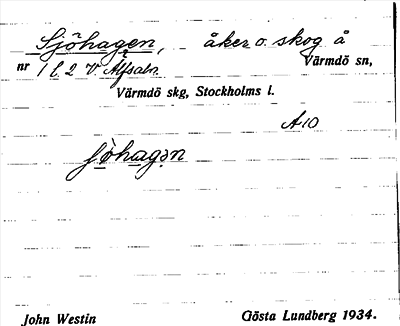 Sjöhagen, åker o. skog å
nr 1 l. 2 V. Älfsala. Värmdö sn,
Värmdö skg, Stockholms l.
A10
John Westin Gösta Lundberg 1934.